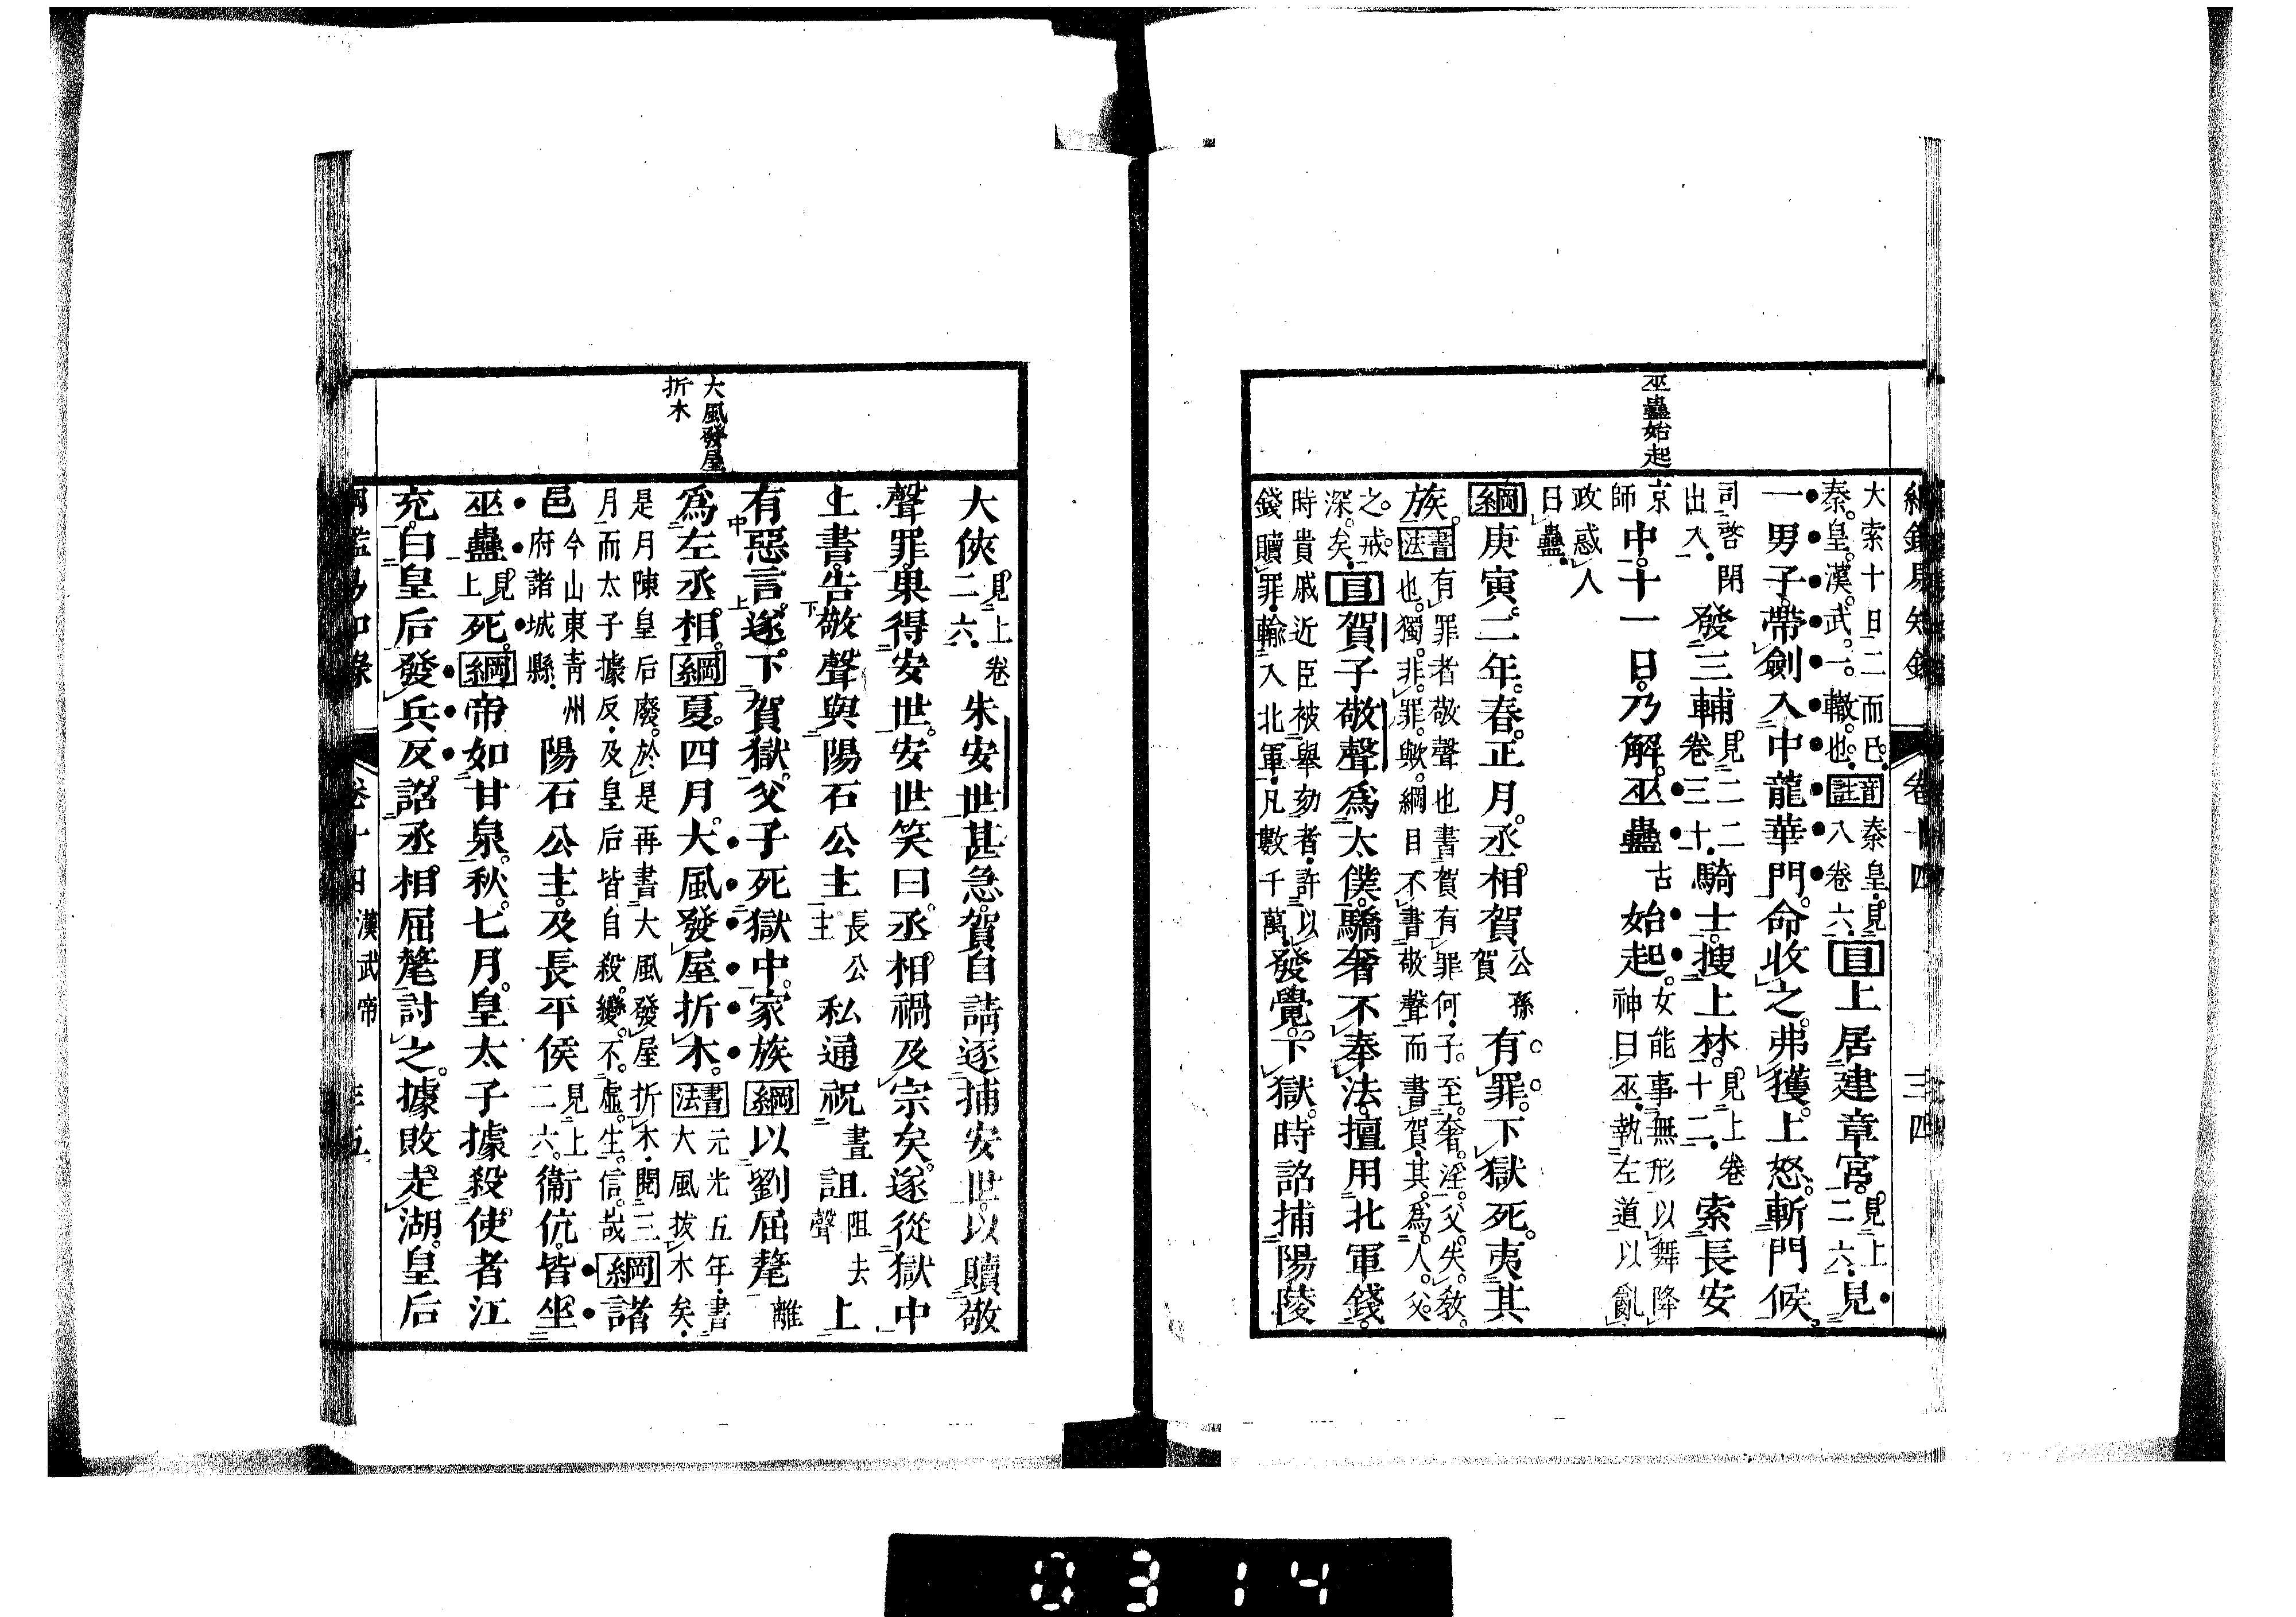 綱鑑易知錄 卷十四 三四
巫蠱始起
大索十日二而已。秦皇。漢。武。一。轍。也。音註秦皇見八卷六。目上居建章宮。見上二六。見
一男子。帶劍入中龍華門。命收之。弗獲。上怒。斬門候。
司啓閉出入。發三輔見二二卷三十。騎士。搜上林。見上卷十二。索長安
京師中。十一日。乃解。巫蠱古始起。女能事無形以舞降神曰巫。執左道以亂
政惑人曰蠱。
綱庚寅。二年。春。正月。丞相賀公孫賀有罪。下獄死。夷其
族。書法有罪者敬聲也書賀有罪何。子。至。奢。淫。父。失。敎。也。獨。非。罪。歟。綱目不書敬聲而書賀。其。爲。人。父。
之。戒。深。矣。目賀子敬聲爲太僕。驕奢不奉法。擅用北軍錢。
時貴戚近臣被舉劾者。許以錢贖罪。輸入北軍。凡數千萬。發覺。下獄。時詔捕陽陵
大風發屋折木
大俠見上卷二六。朱安世甚急。賀自請逐捕安世。以贖敬
聲罪。果得安世。安世笑曰。丞相禍及宗矣。遂從獄中
上書。告敬聲與陽石公主長公主私通祝晝詛阻去聲上
有惡言。遂下賀獄。父子死獄中。家族綱以劉屈氂離
爲左丞相。綱夏。四月。大風發屋折木。書法元光五年。書大風拔木矣。
是月陳皇后廢。於是再書大風發屋折木。閱三月而太子據反。及皇后皆自殺。變。不。虛。生。信。哉綱諸
邑今山東青州府諸城縣。陽石公主。及長平侯見上二六。衞伉。皆坐
巫蠱見上死。綱帝如甘泉。秋。七月。皇太子據殺使者江
充。白皇后發兵反。詔丞相屈氂討之。據敗走湖。皇后
綱鑑易知錄 卷十四 漢武帝